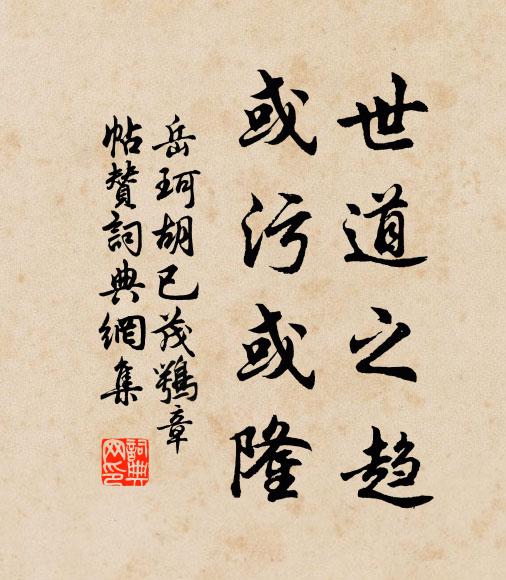 世道之趋
或污或隆
岳珂胡已茂鶚章
帖贊詞典網集
詞典网印